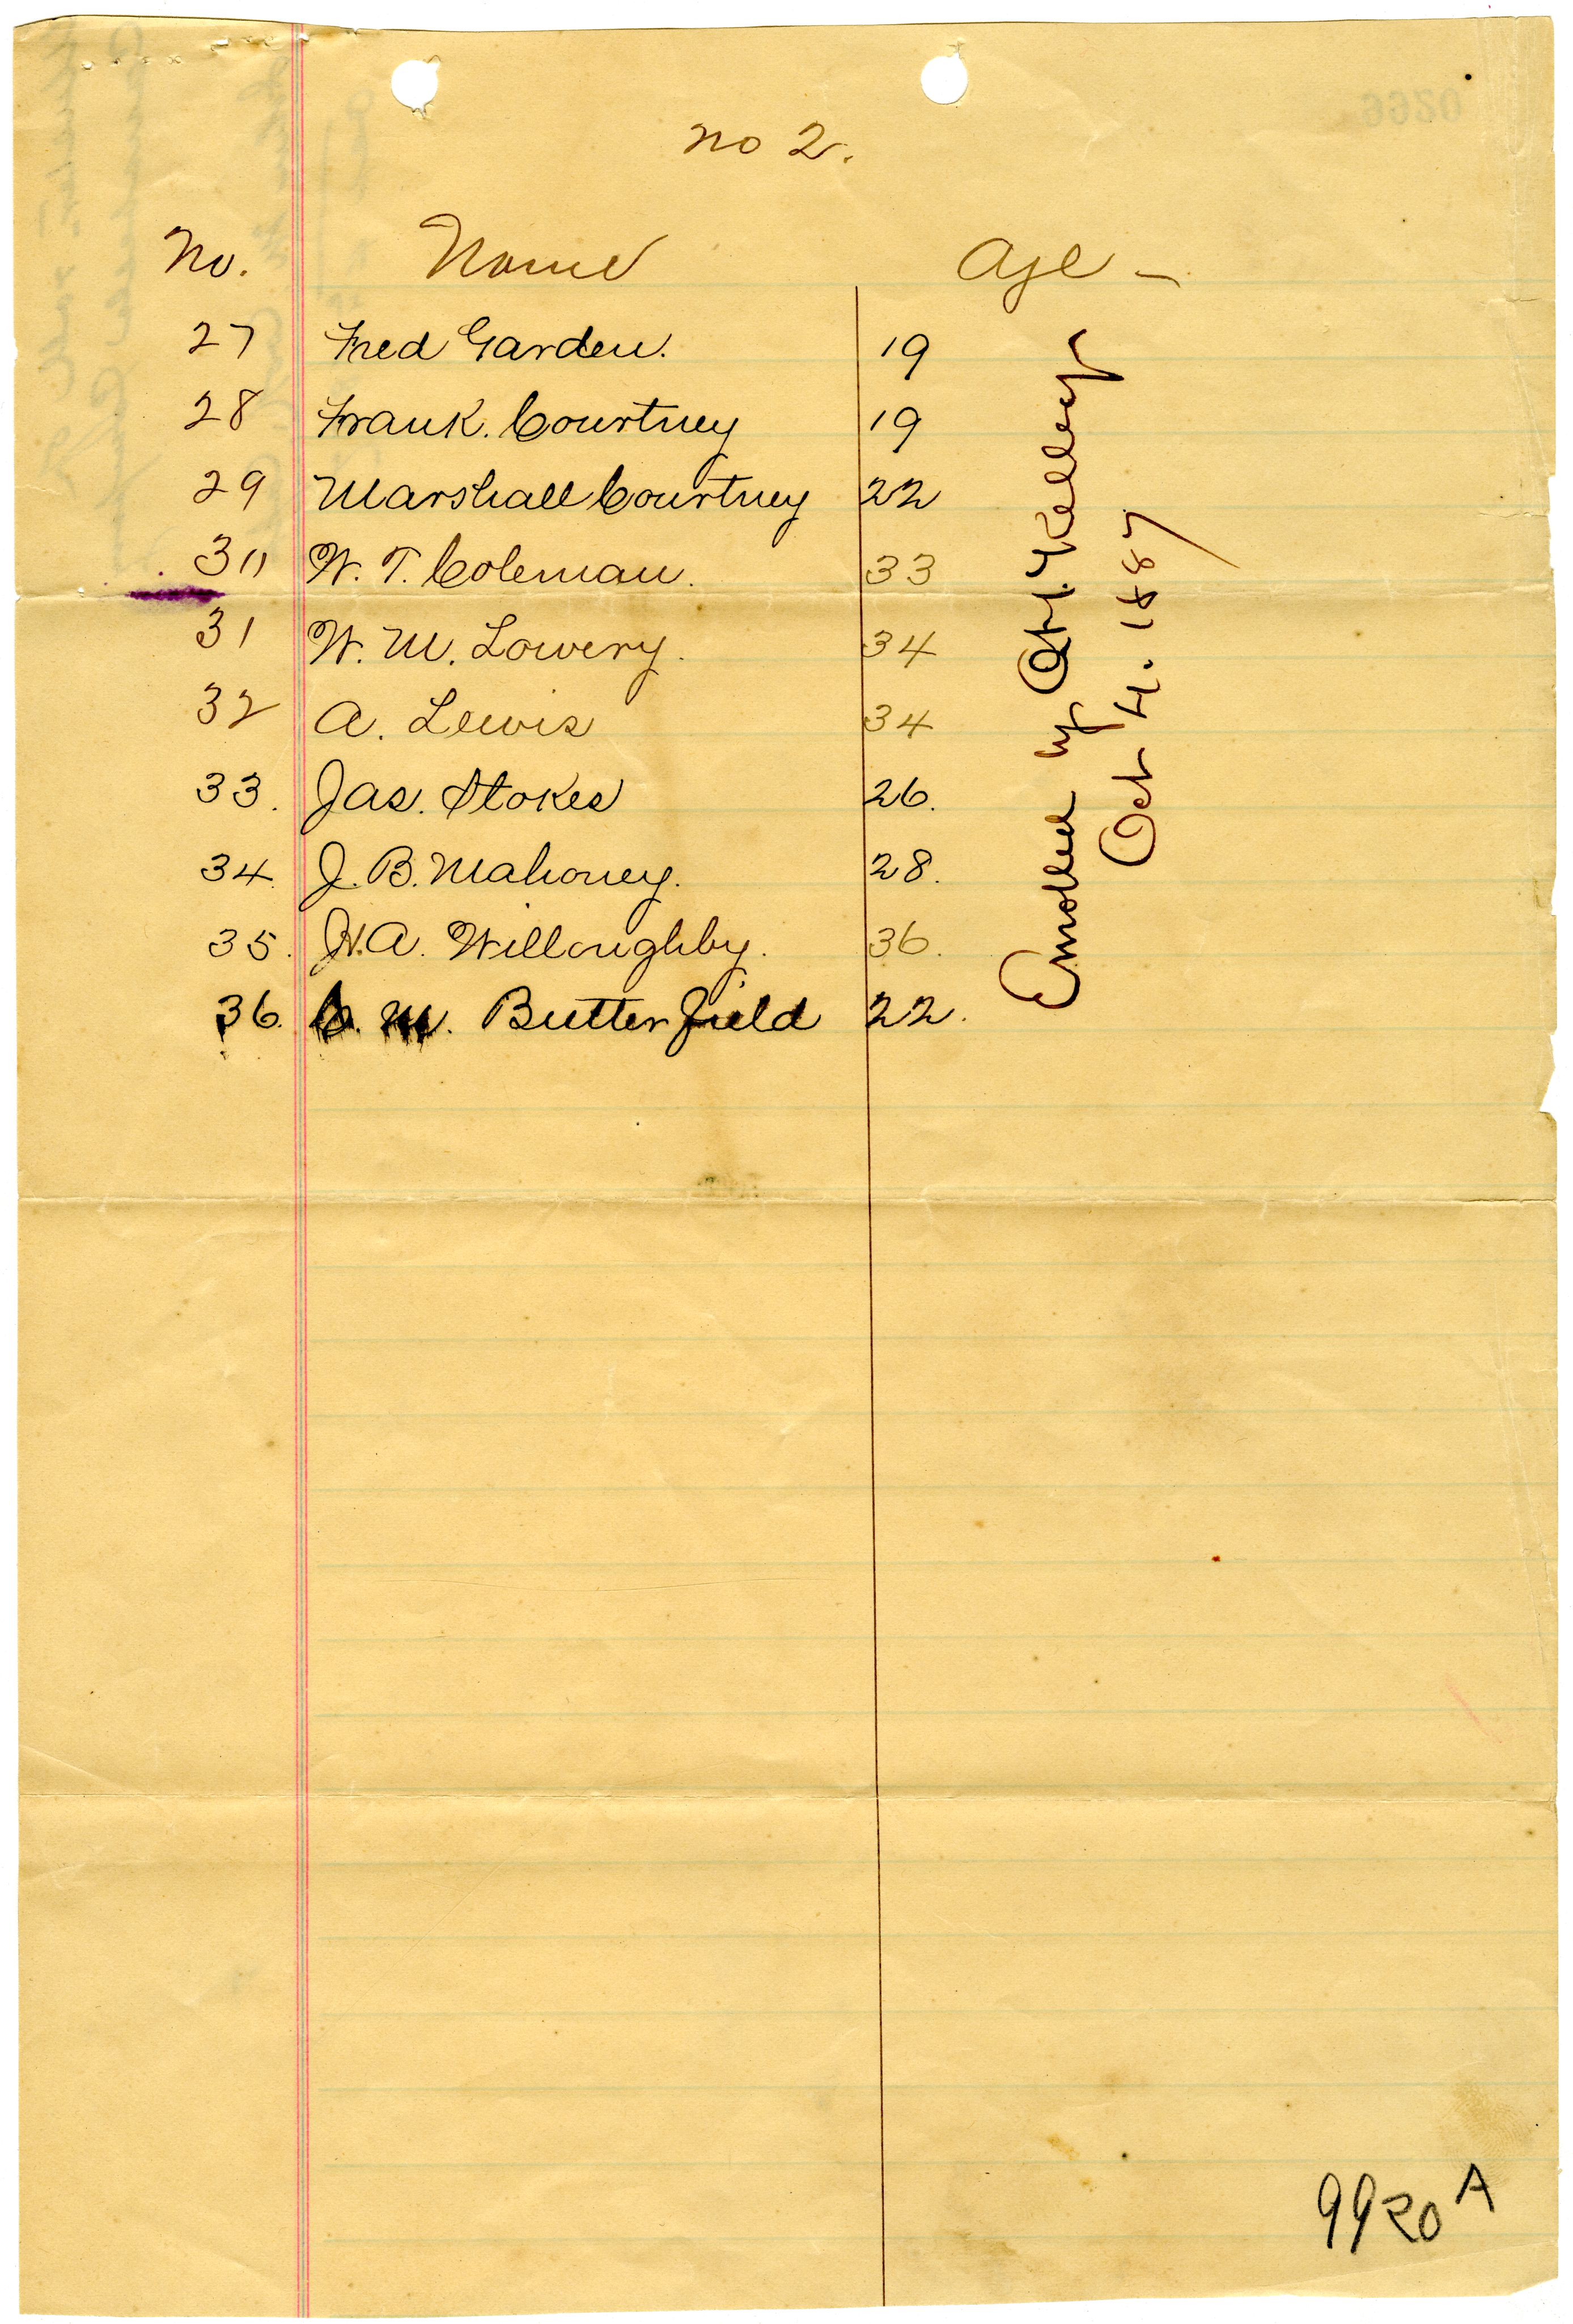 no 2.
No. Name Age –
27 Fred Garden. 19
28 Frank. Courtney 19
29 Marshall Courtney 22
30 W. T. Coleman. 33
31 W. M. Lowery. 34
32 A. Lewis 34
33. Jas. Stokes 26.
34. J. B. Mahoney. 28.
35. A. Willoughby. 36.
36. M. Butterfield 22.
Enrolled by
Oct 4. 1887
9920 A